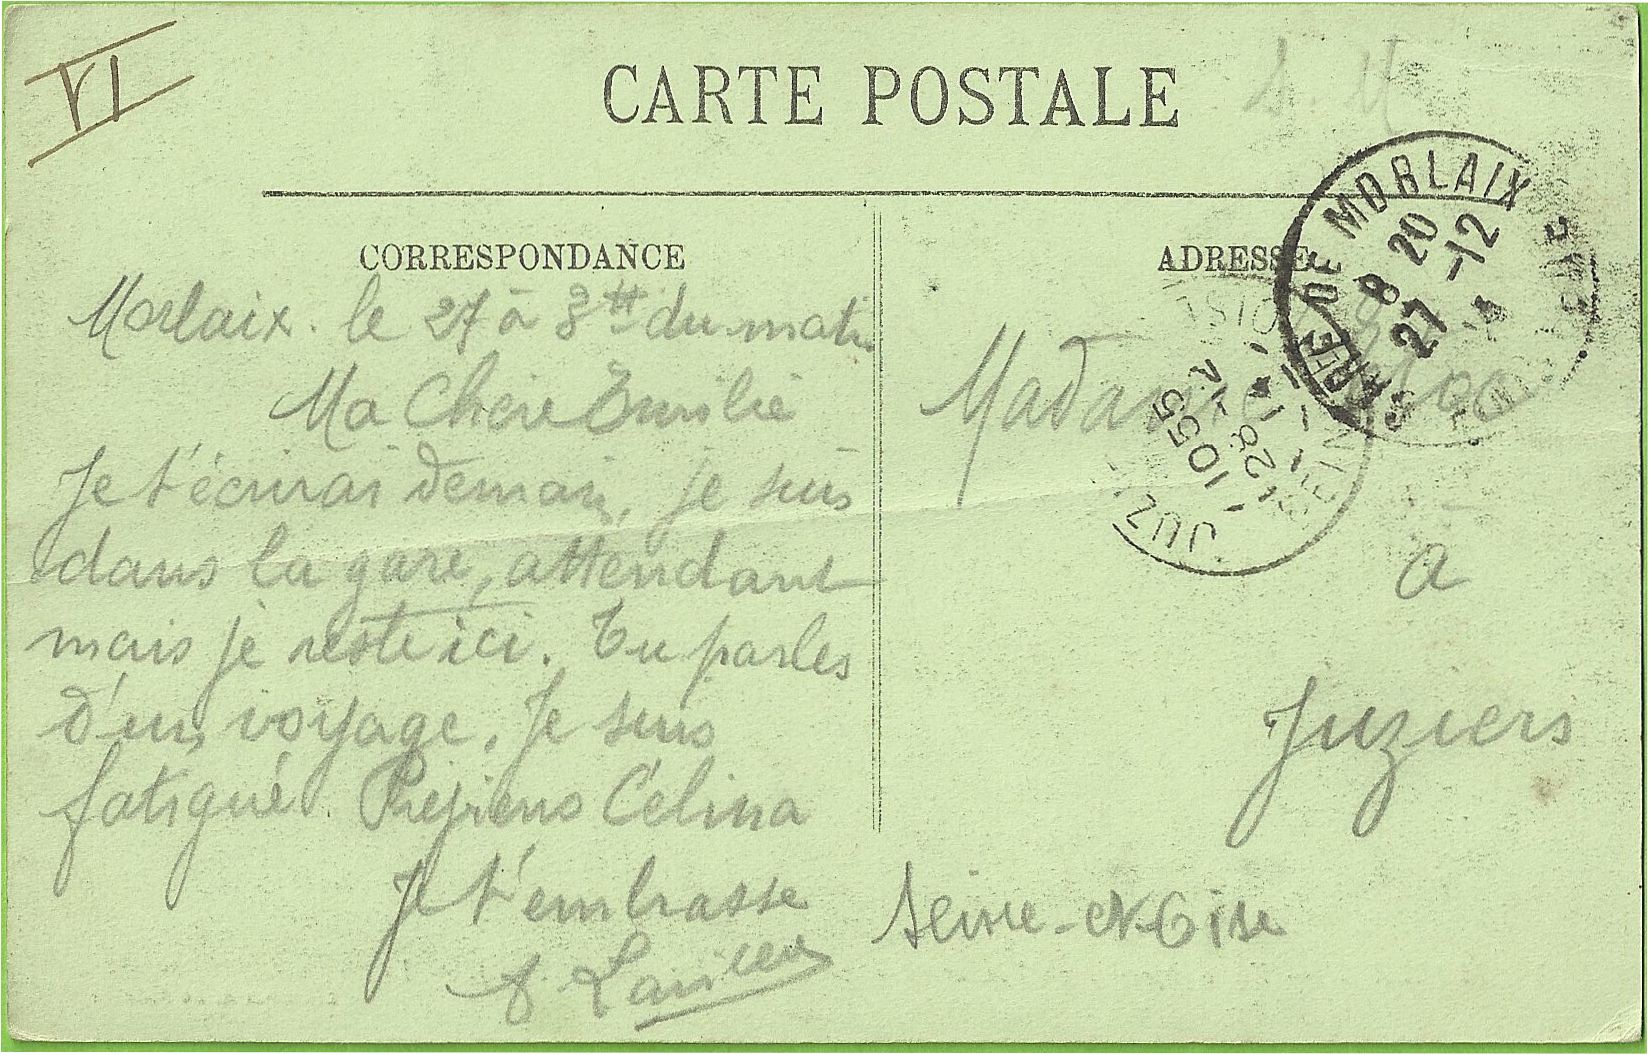 VI
CARTE POSTALE
CORRESPONDANCE
Morlaix. le 27 à 8 H du matin
Ma Chère Emilie
Je t'écrirai demain, je suis
dans la gare, attendant
mais je reste ici. Tu parles
d'un voyage. Je suis
fatigué. Préviens Célina
Je t'embrasse
ADRESSE
Madame
à
Juziers
Seine-et-Oise
DE MORLAIX
8 20
27 -12
JUZ
10 55
28 -1